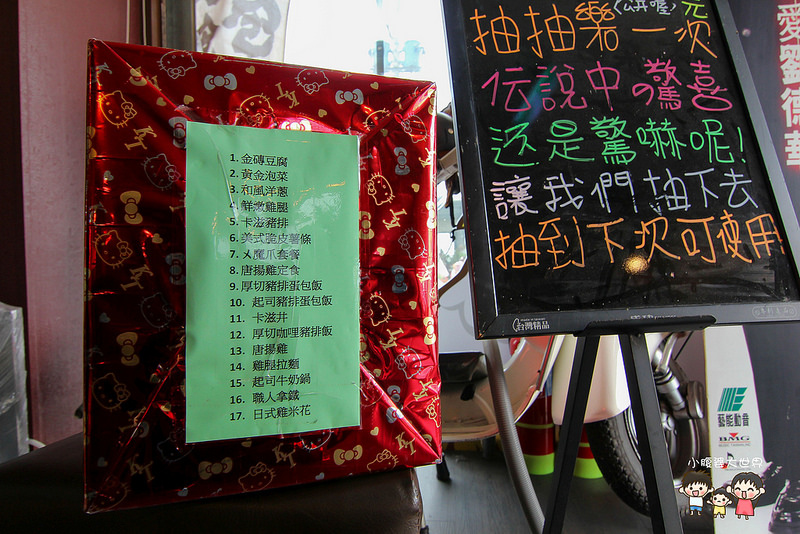 1. 金磚豆腐
2. 黃金泡菜
3. 和風洋蔥
4. 鮮嫩雞腿
5. 卡滋豬排
6. 美式脆皮薯條
7. ㄨ魔爪套餐
8. 唐揚雞定食
9. 厚切豬排蛋包飯
10. 起司豬排蛋包飯
11. 卡滋丼
12. 厚切咖哩豬排飯
13. 唐揚雞
14. 雞腿拉麵
15. 起司牛奶鍋
16. 職人拿鐵
17. 日式雞米花
元
抽抽樂一次
伝說中の驚喜
还是驚嚇呢!
讓我們抽下去
抽到下次可使用
台灣精品
愛劉德華
藝能動音
BMG
小腹婆大世界